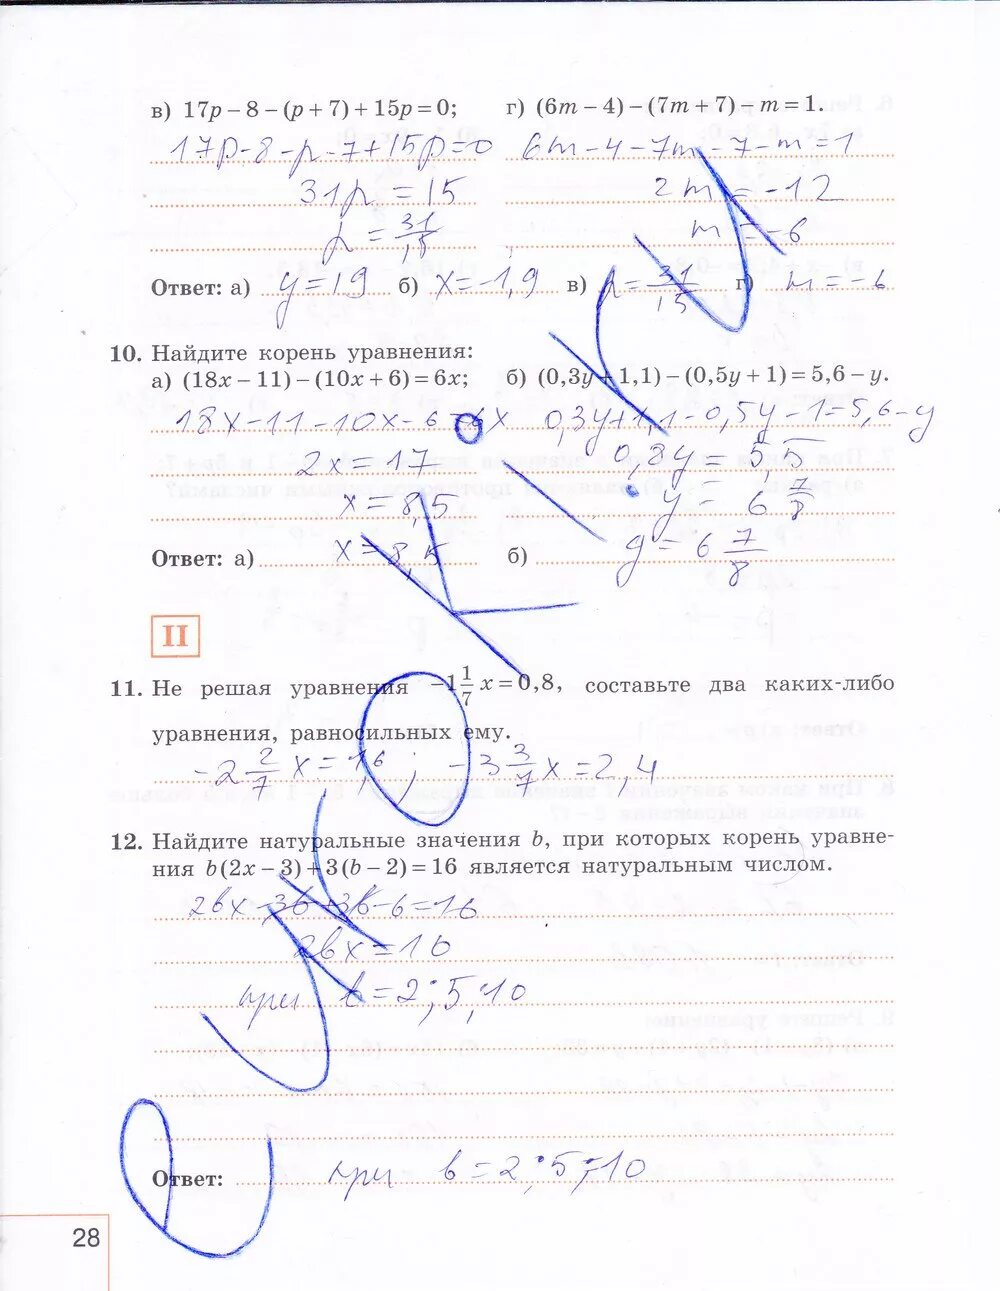 в) 17p − 8 − (p + 7) + 15p = 0; г) (6m − 4) − (7m + 7) − m = 1.
17p-8-p-7+15p=0 6m-4-7m-7-m=1
31p = 15 2m = -12
p = 31/15 m = -6
Ответ: а) y=19 б) x=-1,9 в) p=31/15 г) m=-6
10. Найдите корень уравнения:
а) (18x − 11) − (10x + 6) = 6x; б) (0,3y + 1,1) − (0,5y + 1) = 5,6 − y.
18x-11-10x-6=6x 0,3y+1,1-0,5y-1=5,6-y
2x=17 0,8y = 5,5
x=8,5 y = 6 7/8
Ответ: а) x=8,5 б) y=6 7/8
II
11. Не решая уравнения −1 1/7 x = 0,8, составьте два каких-либо
уравнения, равносильных ему.
-2 2/7 x=1,6; -3 3/7 x=2,4
12. Найдите натуральные значения b, при которых корень уравне-
ния b(2x − 3) + 3(b − 2) = 16 является натуральным числом.
2bx-3b+3b-6=16
2bx=16
при b=2;5;10
Ответ: при b=2;5;10
28